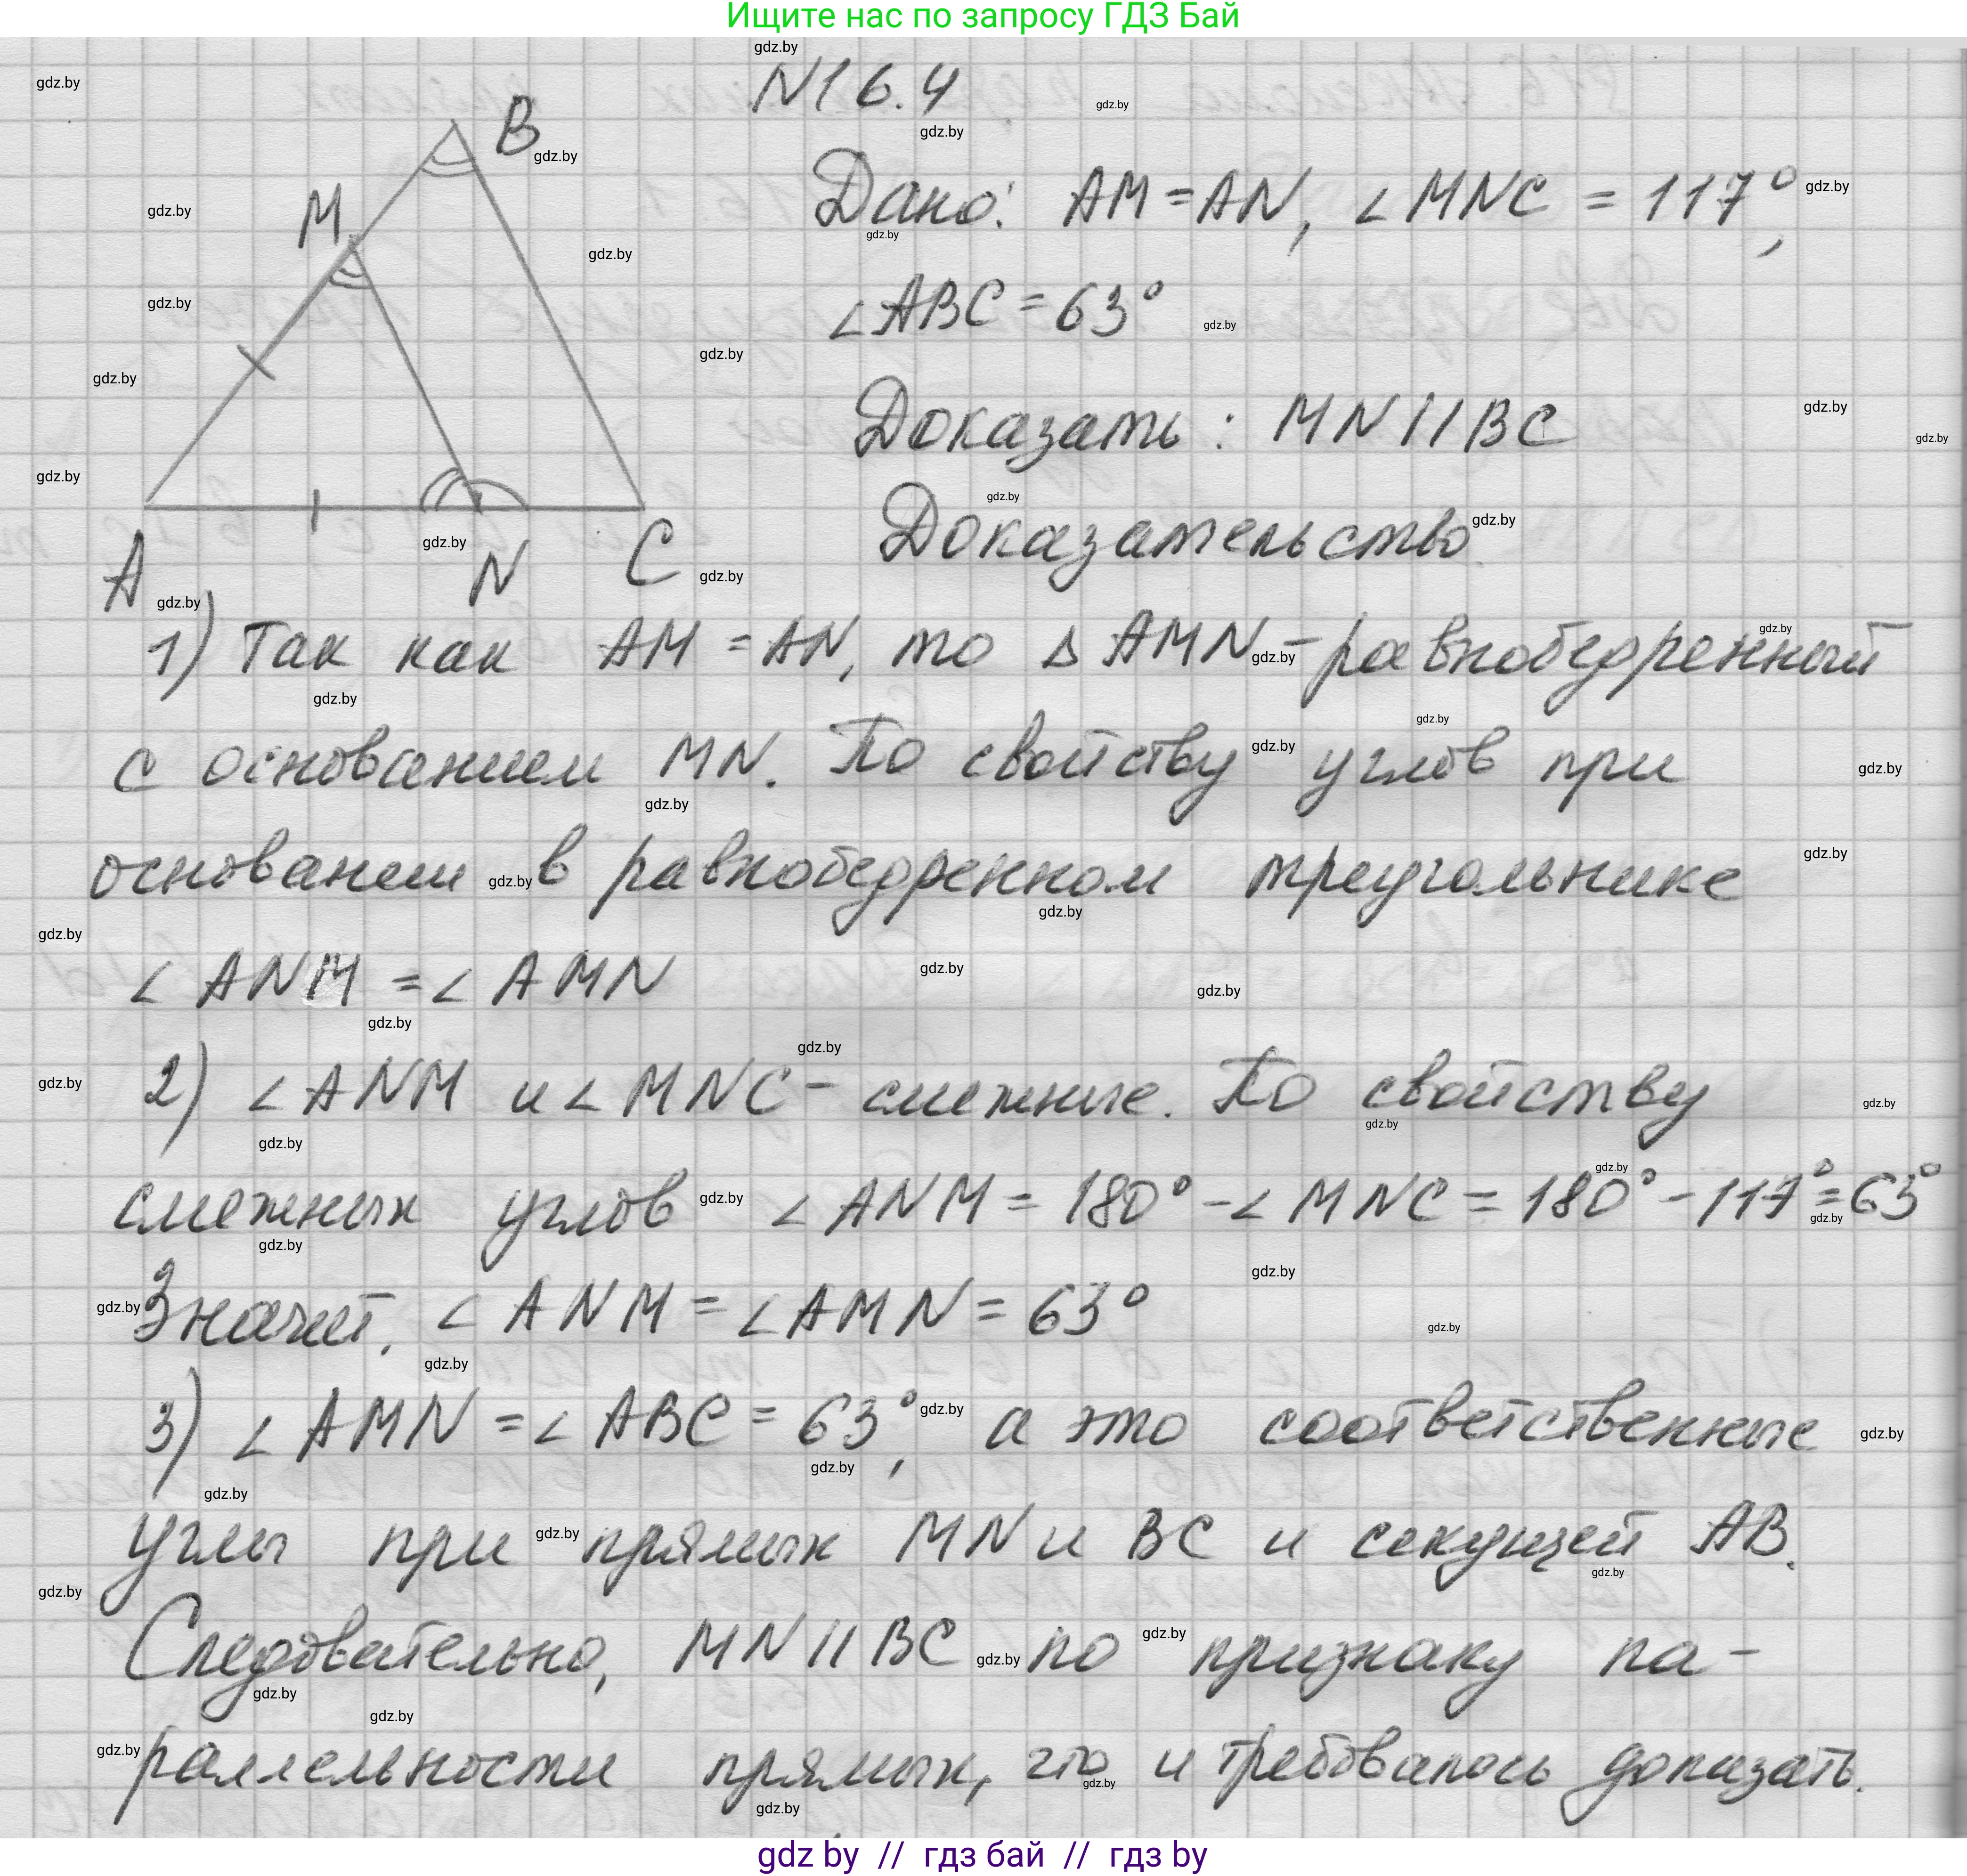 Ищите нас по запросу ГДЗ Бай
N16.4
B
M
A
N
C
Дано: AM = AN, ∠MNC = 117°,
∠ABC = 63°
Доказать: MN || BC
Доказательство
1) Так как AM = AN, то Δ AMN - равнобедренный
с основанием MN. По свойству углов при
основании в равнобедренном треугольнике
∠ANM = ∠AMN
2) ∠ANM и ∠MNC - смежные. По свойству
смежных углов ∠ANM = 180° - ∠MNC = 180° - 117° = 63°
Значит, ∠ANM = ∠AMN = 63°
3) ∠AMN = ∠ABC = 63°, а это соответственные
углы при прямых MN и BC и секущей AB.
Следовательно, MN || BC по признаку па-
раллельности прямых, что и требовалось доказать.
gdz by // гдз бай // гдз by